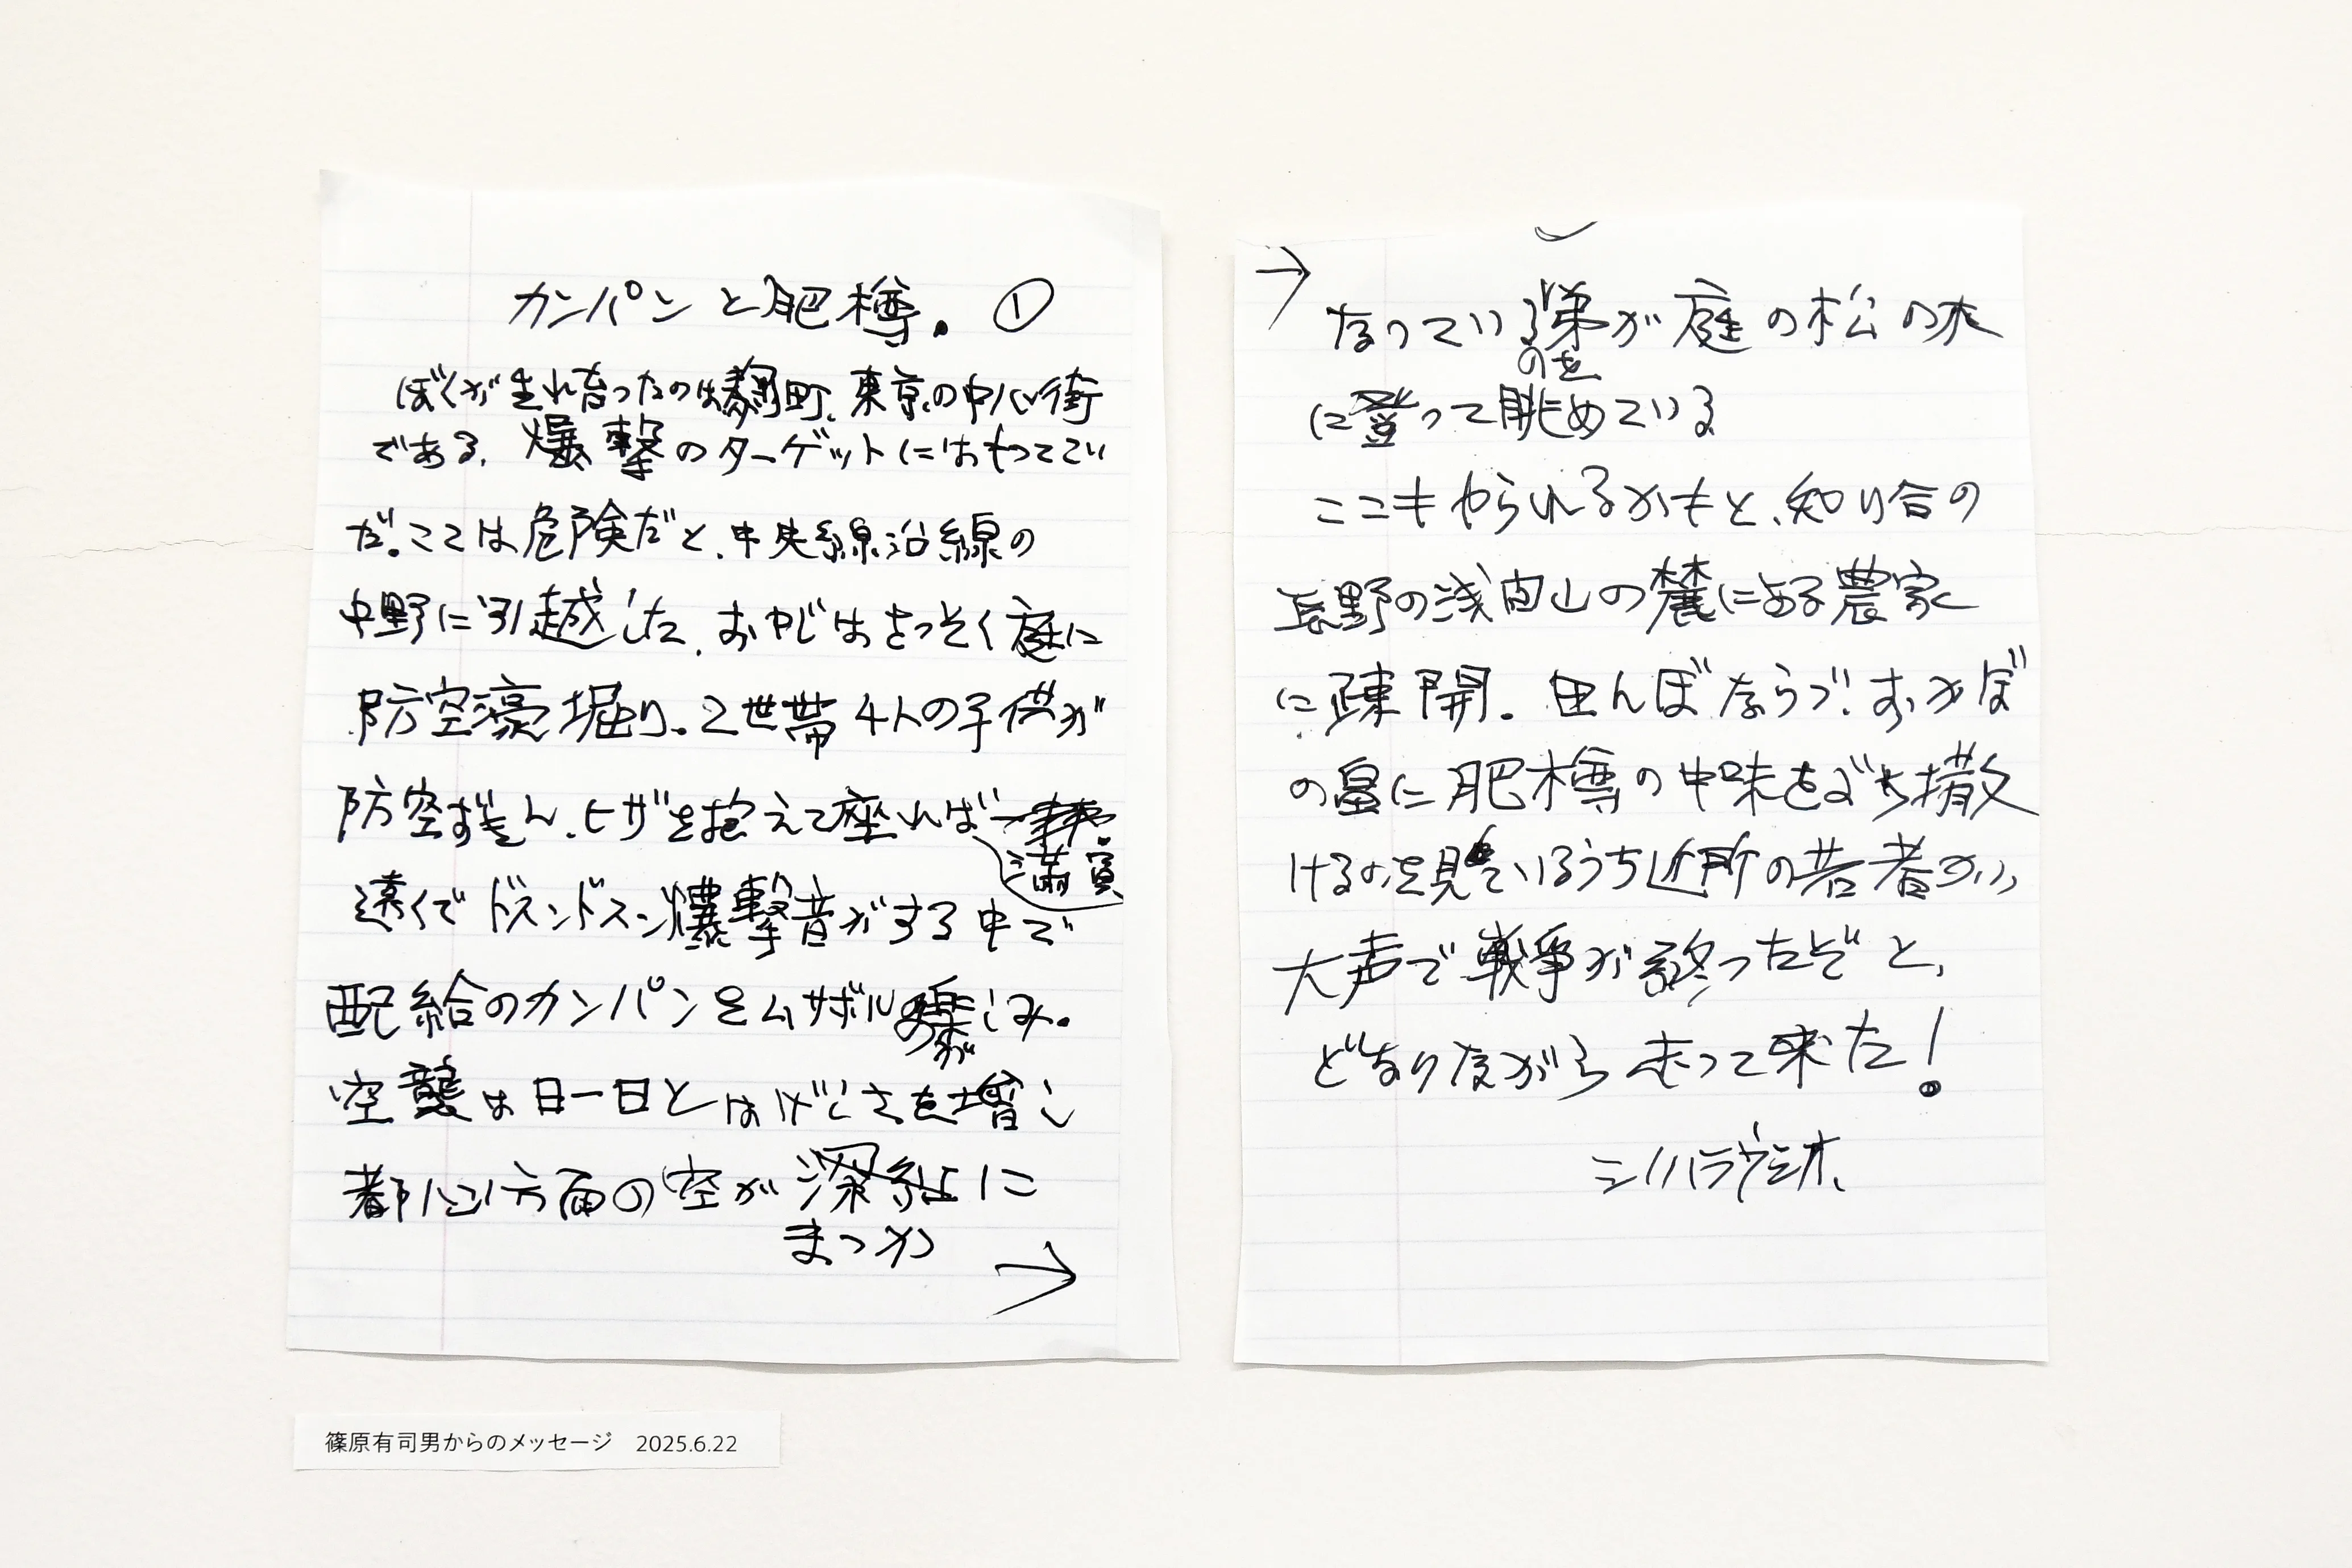 カンパンと肥樽。 ①
ぼくが生れ育ったのは麹町、東京の中心街
である。爆撃のターゲットにはもってこい
だ。ここは危険だと、中央線沿線の
中野に引越した。おやじはさっそく庭に
防空濠堀り。2世帯4人の子供が
防空ずきん、ヒザを抱えて座れば
満員
遠くでドスンドスン爆撃音がする中で
配給のカンパンをムサボルのが楽しみ。
空襲は日一日とはげしさを増し
都心方面の空が深紅に
まっか
→
→
なっているのを弟が庭の松の木
に登って眺めている
ここもやられるかもと、知り合の
長野の浅間山の麓にある農家
に疎開。田んぼならづ!おかぼ
の畠に肥樽の中味をぶち撒
けるのを見ているうち近所の若者が、
大声で戦争が終ったぞと、
どなりながら走って来た!
シノハラウシオ、
篠原有司男からのメッセージ 2025.6.22